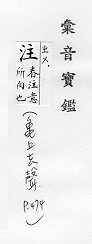 彙音寶鑑
出入
注
春注意
所向也
(龜上去聲
P.474)